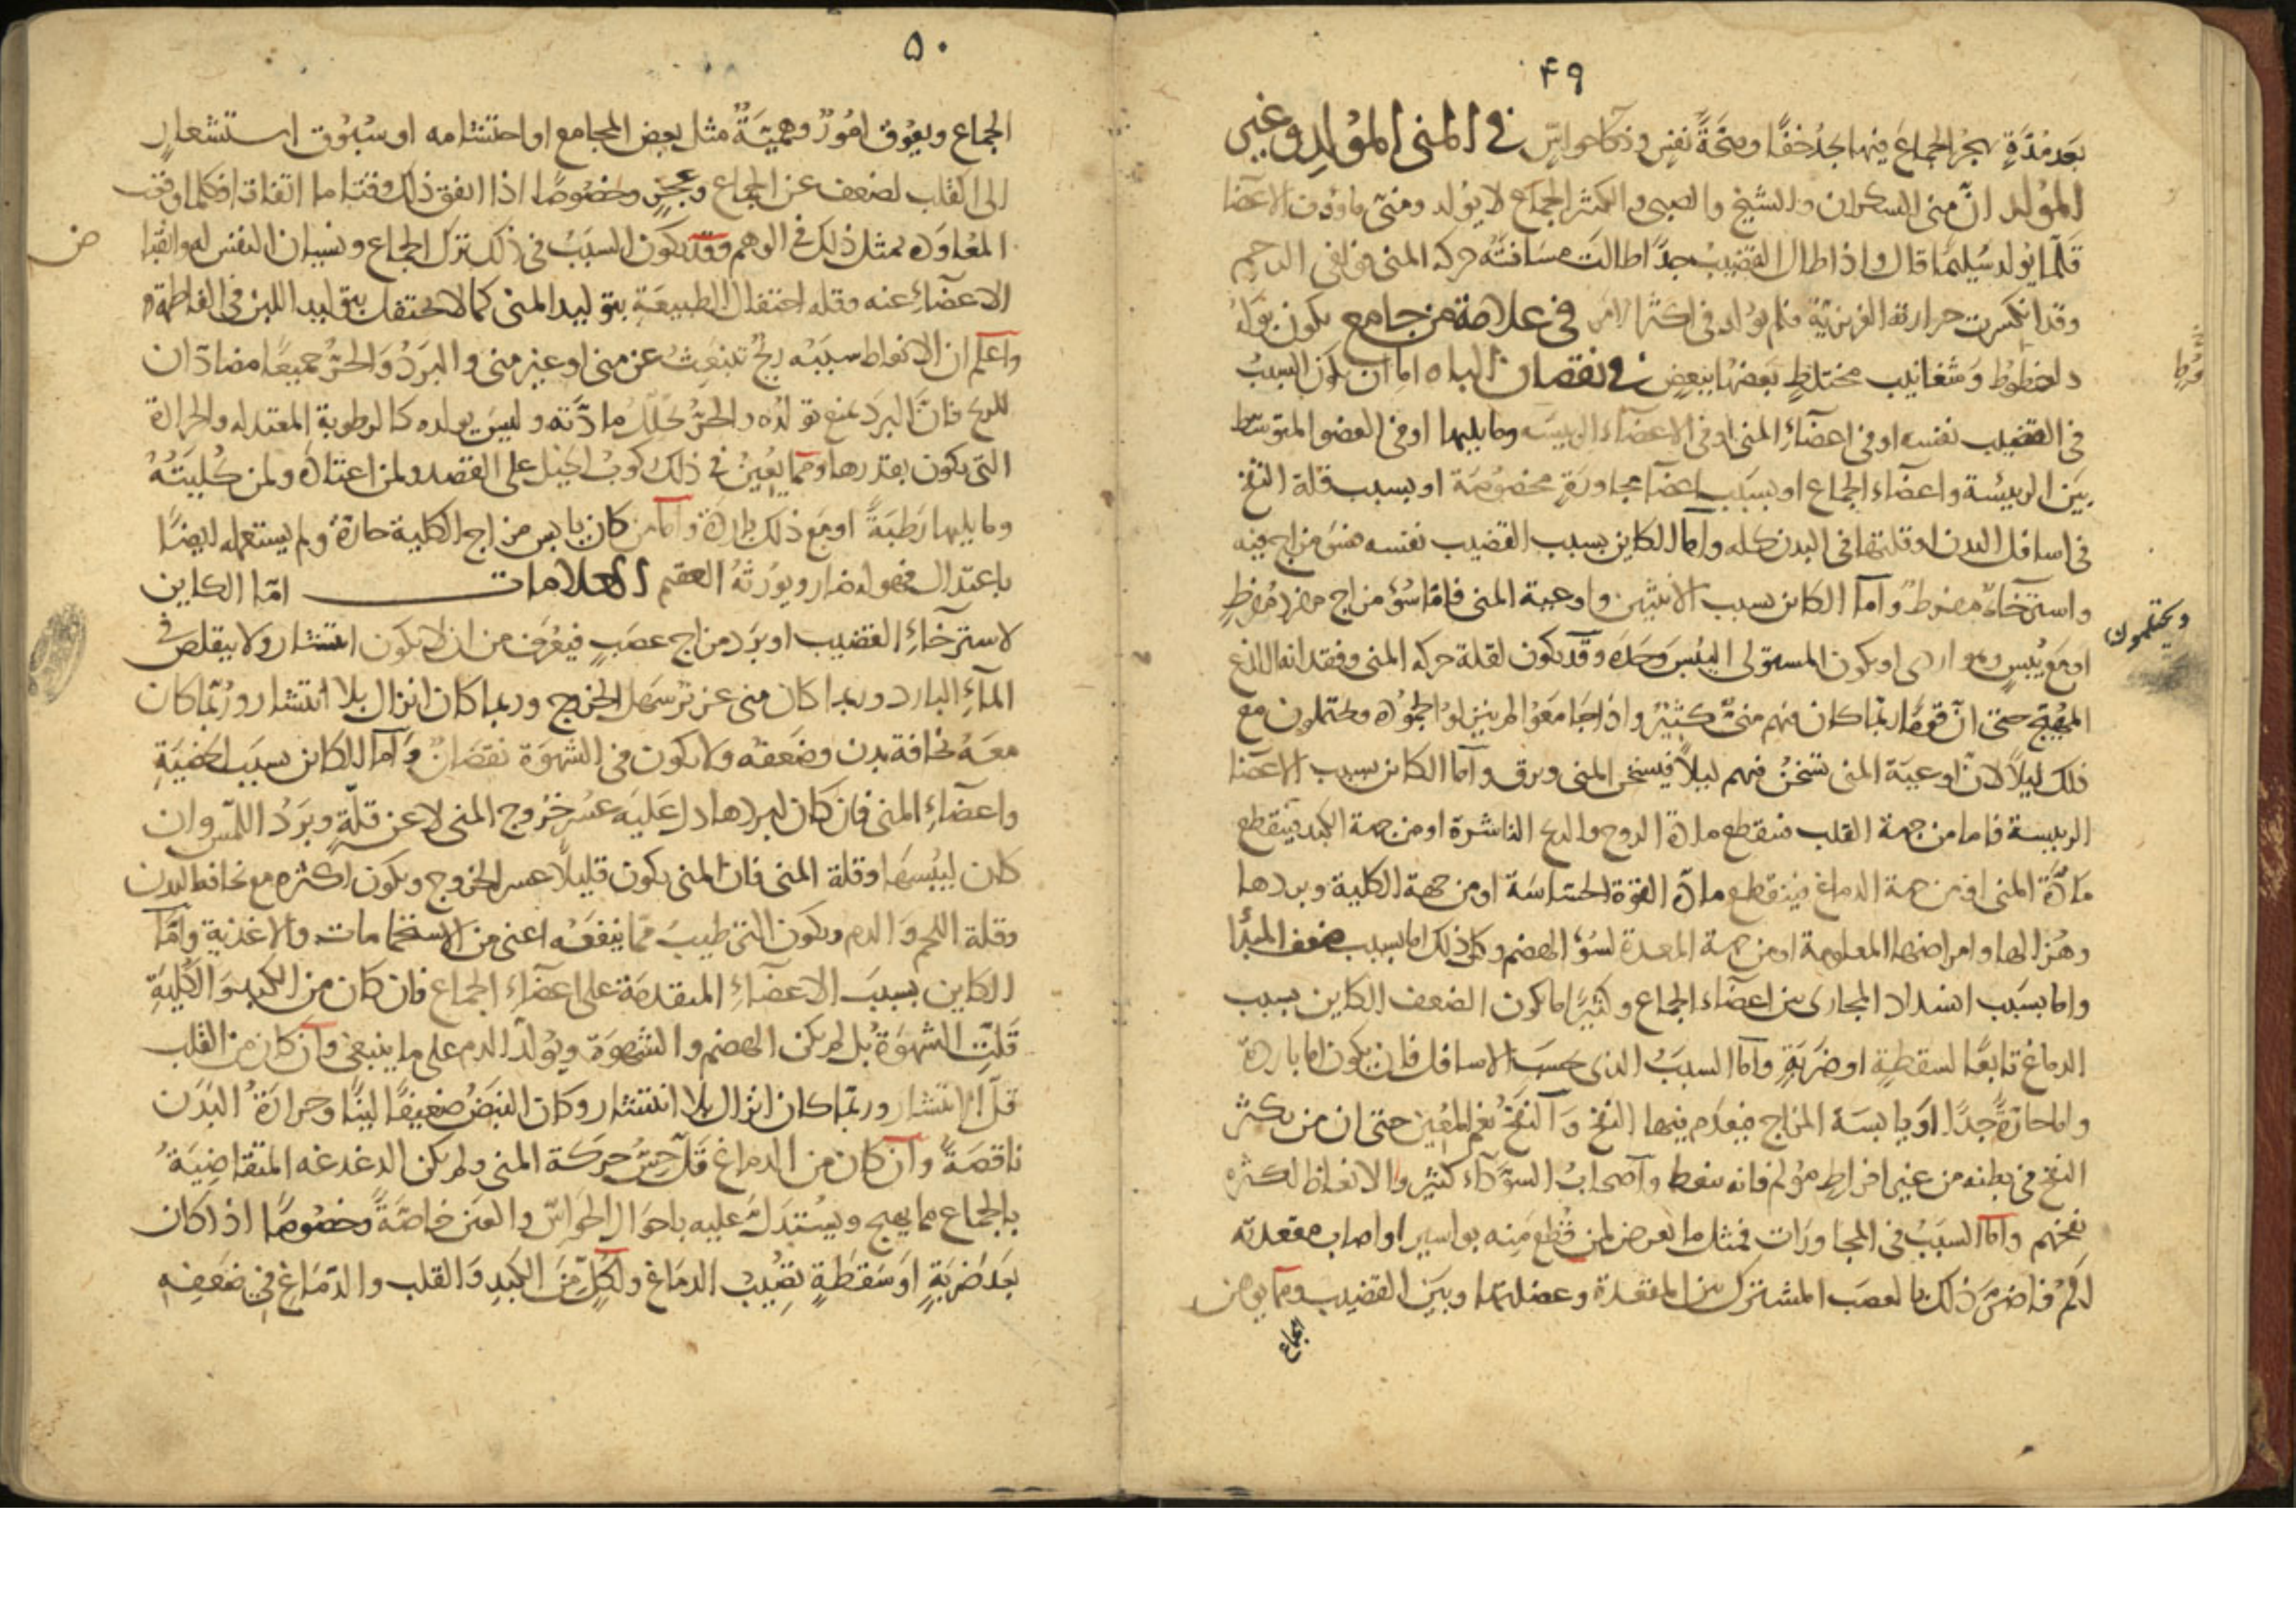 ٤٩
بعد مدةٍ يهجر الجماع فيها يجد خفًّا وصحّةَ نفسٍ وذكآ حواسٍّ في المنى المولد وغير
المولد انّ منى السكران والشيخ والصبى والكثير الجماع لا يولد ومنىّ ماؤوف الاعضا
قلّما يولد سليمًا قال واذا طال القضيب جدًّا طالت مسافة حركه المنى فوافى الرحم
وقد انكسرت حرارته الغريزية فلم يولد فى اكثر الامر فى علامة من جامع يكون بوله
ذا خطوط وشغانيب مختلطٍ بعضها ببعض فى نقصان الباه اما ان يكون السبب
فى القضيب نفسه او فى اعضآء المنى او فى الاعضآء الرييسه وما يليها او فى العضو المتوسّط
بين الرييسة واعضآء الجماع او بسبب اعضآ مجاورة مخصوصة او بسبب قلة النفخ
فى اسافل البدن او قلتها فى البدن كله وامّا الكاين بسبب القضيب نفسه فسوء مزاج فيه
واسترخآء مفرط وامّا الكاين بسبب الانثيين واوعية المنى فامّا سؤ مزاج مفرد مفرطٍ
او مع يُبسٍ وهو اردى او يكون المستولى اليُبس وحده وقد يكون لقلة حركه المنى وفقدانه اللذع
المهيّج حتى انّ قومًا ربّما كان فيهم منىٌّ كثيرٌ واذا جامعوا لم ينزلوا لجموده ويحتلمون مع
ذلك ليلاً لانّ اوعية المنى تسخن فيهم ليلاً فيسخن المنى ويرق وامّا الكاين بسبب الاعضا
الرييسة فاما من جهة القلب فينقطع مادة الروح والريح الناشرة او من جهة الكبد فينقطع
مادّة المنى او من جهة الدماغ فينقطع مادّة القوّة الحسّاسة او من جهة الكلية وبردها
وهُزالها وامراضها المعلومة او من جهة المعدة لسؤ الهضم وكل ذلك اما بسبب ضعف المبدأ
واما بسبب انسداد المجارى بين اعضآء الجماع وكثيرًا ما يكون الضعف الكاين بسبب
الدماغ تابعًا لسقطةٍ او ضربةٍ وامّا السبب الذى بحسب الاسافل فان يكون اما باردة
واما حارةً جدًّا او يابسة المزاج فيعدم فيها النفخ والنفخ نعم المعين حتى ان من يكثر
النفخ فى بطنه من غير افراط مؤلم فانه ينعظ واصحاب السودآء كثيروا الانعاظ لكثره
نفخهم وامّا السبب فى المجاورات فمثل ما يعرض لمن قُطع منه بواسير او اصاب مقعدته
المٌ فاضرّ ذلك بالعصب المشترك بين المقعدة وعضلتها وبين القضيب ومما يوهن
الجماع
مفرط
ويحتلمون
٥٠
الجماع ويعوق امورٌ وهميّةٌ مثل بغض المجامع او احتشامه او سُبوق استشعارٍ
الى القلب لضعف عن الجماع وعجز وخصوصًا اذا اتفق ذلك وقتا ما اتفاقا فكلما وقعت
المعاوده تمثل ذلك فى الوهم وقد يكون السبب فى ذلك ترك الجماع ونسيان النفس له وانقباض
الاعضآء عنه وقله احتفال الطبيعة بتوليد المنى كما لا تحتفل بتوليد اللبن فى الفاطمة
واعلم ان الانعاظ سببه ريحٌ تنبعث عن منى او غير منى والبرد والحرّ جميعًا مضادّان
للريح فانّ البرد يمنع تولّده والحرّ يحلّل مادّته وليس يولده كالرطوبة المعتدله والحرارة
التى يكون بقدرها وممّا يُعين فى ذلك ركوب الخيل على القصد ولمن اعتاده ولمن كليته
وما يليها رطبةً او مع ذلك باردة وامّا من كان يابس مزاج الكلية حارة ولم يستعمله ايضًا
باعتدال فهو له ضار ويورثه العقم العلامات امّا الكاين
لاسترخآء القضيب او برد مزاج عصبٍ فيعرف من ان لا يكون انتشار ولا يتقلص فى
المآء البارد وربما كان منى غزير سهل الخروج وربما كان انزال بلا انتشار وربّما كان
معه نحافة بدن وضعفه ولا يكون فى الشهوة نقصانٌ وامّا الكاين بسبب الخصية
واعضآء المنى فان كان لبردها دلّ عليه عسر خروج المنى لا عن قلّةٍ وبرد اللمس وان
كان ليبسها وقلة المنى فان المنى يكون قليلاً عسر الخروج ويكون اكثره مع نحافه البدن
وقلة اللحم والدم ويكون التى طيب ممّا ينفعه اعنى من الاستحمامات والاغذية وامّا
الكاين بسبب الاعضآء المتقدمة على اعضآء الجماع فان كان من الكبد والكلية
قلّت الشهوة بل لم يكن الهضم والشهوة وتولّد الدم على ما ينبغى وان كان من القلب
قلّ الانتشار وربّما كان انزال بلا انتشار وكان النبض ضعيفًا لينًا وحرارة البدن
ناقصةً وان كان من الدماغ قلّ حسّ حركة المنى ولم يكن الدغدغه المتقاضية
بالجماع مما يهيج ويستدلّ عليه باحوال الحواسّ والعين خاصّةً وخصوصًا اذا كان
بعد ضربةٍ او سقطةٍ تصيب الدماغ ولكلٍّ من الكبد والقلب والدّماغ فى ضعفه
ض